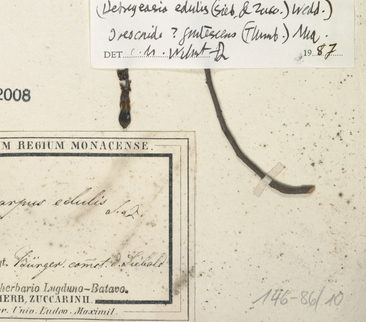 (Debregeasia edulis (Sieb. & Zucc.) Wedd.)
Oreocnide ? frutescens (Thunb.) Miq.
DET. 1987
2008
UM REGIUM MONACENSE.
carpus edulis S. & Z.
Bürger. comm. d. Siebold
herbario Lugduno-Batavo.
HERB. ZUCCARINII.
r. Univ. Ludov. Maximil.
146-86/10